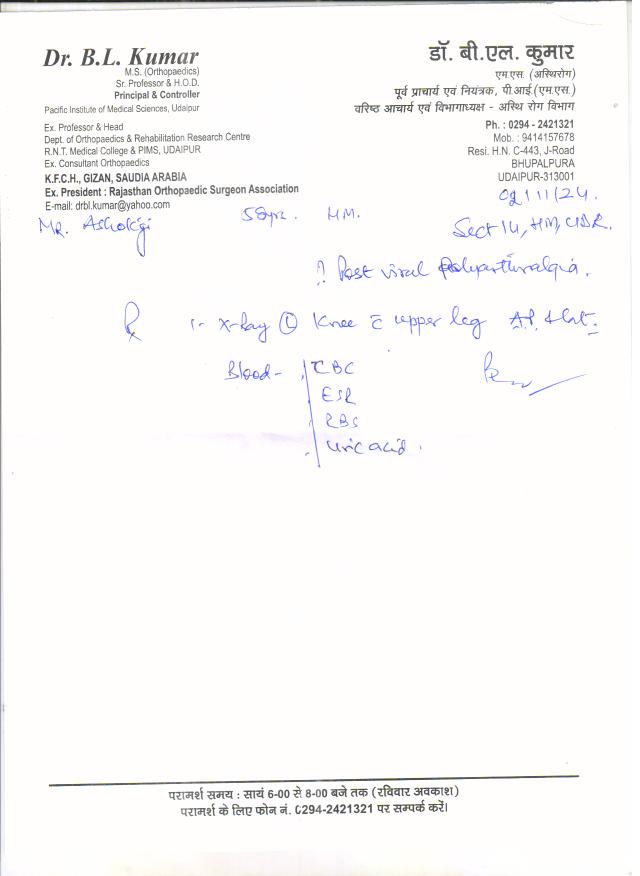 Dr. B.L. Kumar
M.S. (Orthopaedics)
Sr. Professor & H.O.D.
Principal & Controller
Pacific Institute of Medical Sciences, Udaipur
Ex. Professor & Head
Dept. of Orthopaedics & Rehabilitation Research Centre
R.N.T. Medical College & PIMS, UDAIPUR
Ex. Consultant Orthopaedics
K.F.C.H., GIZAN, SAUDIA ARABIA
Ex. President : Rajasthan Orthopaedic Surgeon Association
E-mail: drbl.kumar@yahoo.com
डॉ. बी.एल. कुमार
एम.एस. (अस्थिरोग)
पूर्व प्राचार्य एवं नियंत्रक, पी.आई.(एम.एस.)
वरिष्ठ आचार्य एवं विभागाध्यक्ष - अस्थि रोग विभाग
Ph. : 0294 - 2421321
Mob. : 9414157678
Resi. H.N. C-443, J-Road
BHUPALPURA
UDAIPUR-313001
02/11/24.
Mr. Ashokji 58yr. HM.
Sect 14, HM, UDR.
? Post viral Polyarthralgia.
Rx 1- X-Ray (L) Knee c̄ upper leg AP & Lat.
Blood - CBC
ESR
RBS
Uric acid.
परामर्श समय : सायं 6-00 से 8-00 बजे तक (रविवार अवकाश)
परामर्श के लिए फोन नं. 0294-2421321 पर सम्पर्क करें।